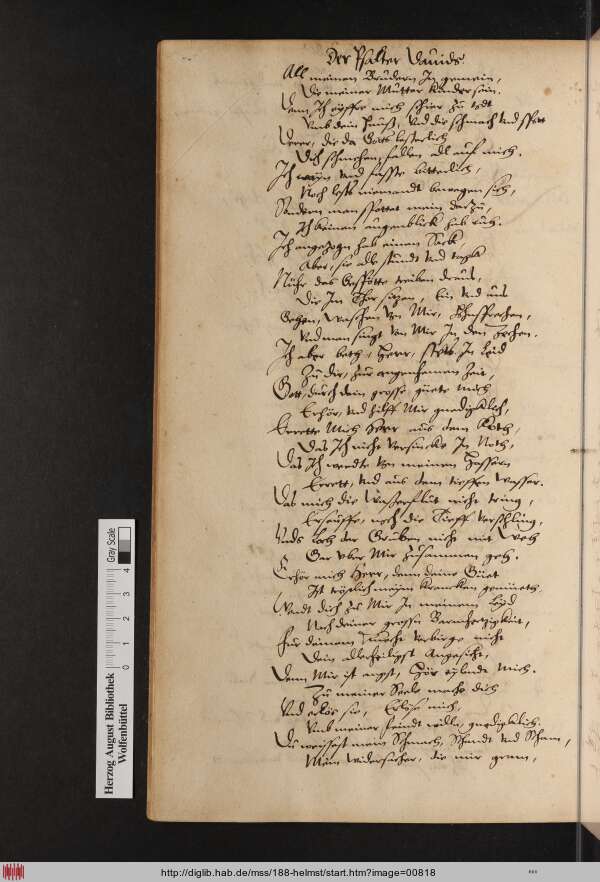 Der Psalter Dauids
All meinen Brüdern In gemein,
Die meiner Mutter Kinder sein.
Denn Ich eyffre mich schier zu todt
Vmb dein Hauß, Vnd die schmach Vnd spott
Derer, die da Gotts lesterlich
Dich schmehen, fallen all auf mich.
Ich weyn Vnd faste bitterlich,
Noch lest niemandt bewegen sich,
Sondern man spottet mein darzu,
Ich keinen augenblick hab ruh.
Ich angezogn hab einen Sack,
Aber, sie alle stundt Vnd tag
Nuhr das Gespötte treiben draus,
Die Im Thor sitzen, Ein Vnd aus
Gehen, waschen Von Mir,
Vnd man singt Von Mir In den Zechen.
Ich aber bett, Herr, stets In Leid
Zu dir, zur angenehmen Zeit,
Gott, durch dein grosse güete mich
Erhör, Vnd hilff Mir gnediglich,
Errette Mich Herr aus dem Koth,
Das Ich nicht Versincke In Noth,
Das Ich werdte Von meinen Hassern
Errett, Vnd aus dem tieffen Wasser.
Das mich die Wasserflut nicht tring,
Erseuffe, noch die Tieff Verschling,
Vnds Loch der Gruben nicht mit Weh
Gar vber Mir zusammen geh.
Erhör mich Herr, denn deine Güet
Ist tröstlich meim krancken gemüeth
Wendt dich zu Mir In meinem Leyd
Nach deiner grossen Barmhertzigkeit,
Für deinem Knecht Verbirge nicht
Dein allerheiligst Angesicht,
Denn Mir ist angst, Hör eylendt Mich.
Zu meiner Seele mache dich
Vnd erlös sie, Erlöse mich,
Vmb meiner feindt willn, gnediglich.
Du weissest mein Schmach, Schandt Vnd Scham,
Mein widersacher, die mir gram,
Herzog August Bibliothek
Wolfenbüttel
0 1 2 3 4
Gray Scale
http://diglib.hab.de/mss/188-helmst/start.htm?image=00818